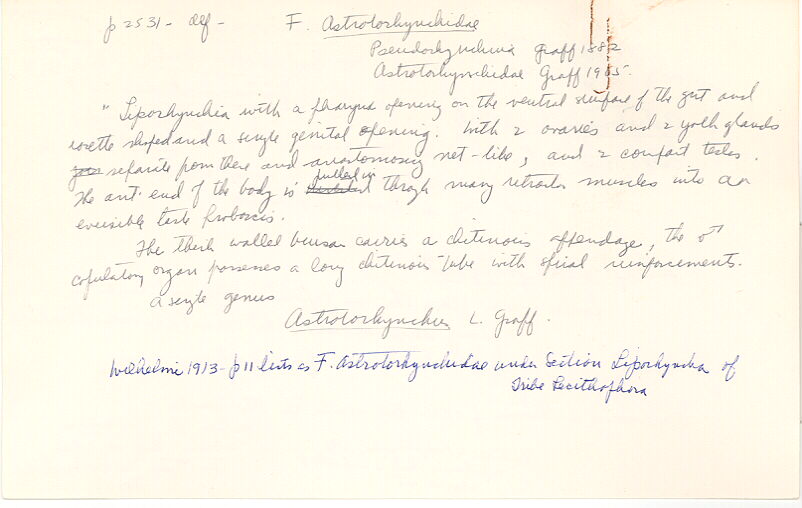 p 2531 - def - F. Astrotorhynchidae
Pseudorhynchina Graff 1882
Astrotorhynchidae Graff 1905.
"Liporhynchia with a pharynx opening on the ventral surface of the gut and
rosette shaped and a single genital opening. With 2 ovaries and 2 yolk glands
separate from these and anastomosing net-like, and 2 compact testes.
The ant. end of the body is pulled in through many retractor muscles into an
eversible taste proboscis.
The thick walled bursa carries a chitinous appendage, the ♂
copulatory organ possesses a long chitinous tube with spiral reinforcements.
a single genus
Astrotorhynchus L. Graff.
Wilhelmi 1913 - p 11 lists as F. Astrotorhynchidae under Section Liporhyncha of
Tribe Lecithophora